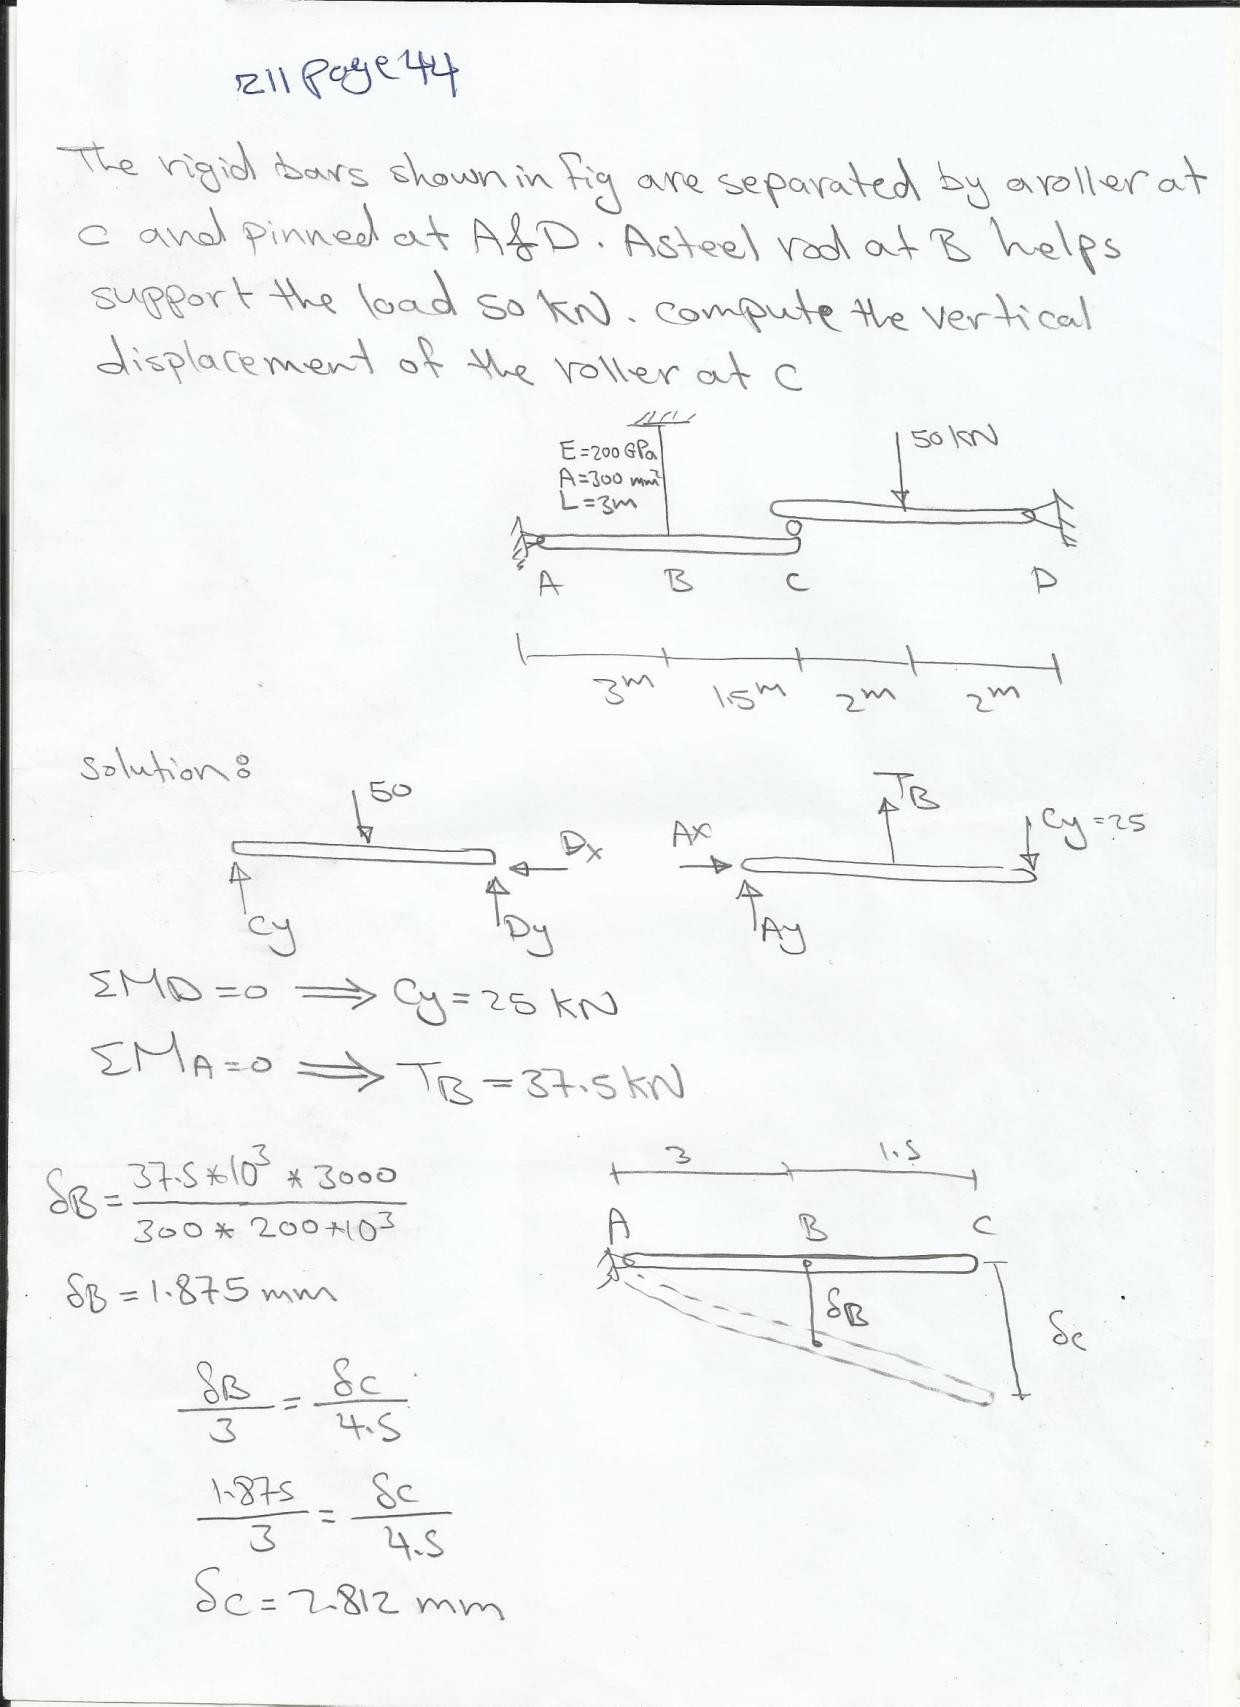 211 page 44
The rigid bars shown in fig are separated by a roller at
C and pinned at A & D. A steel rod at B helps
support the load 50 kN. compute the vertical
displacement of the roller at C
50 kN
E=200 GPa
A=300 mm²
L=3m
A B C D
3m 1.5m 2m 2m
Solution:
50
Cy Dy Dx
Ax Ay TB Cy=25
ΣMD=0 ⟹ Cy=25 kN
ΣMA=0 ⟹ TB=37.5 kN
δB = 37.5*10³ * 3000 / 300 * 200*10³
δB = 1.875 mm
3 1.5
A B C
δB δC
δB/3 = δC/4.5
1.875/3 = δC/4.5
δC = 2.812 mm